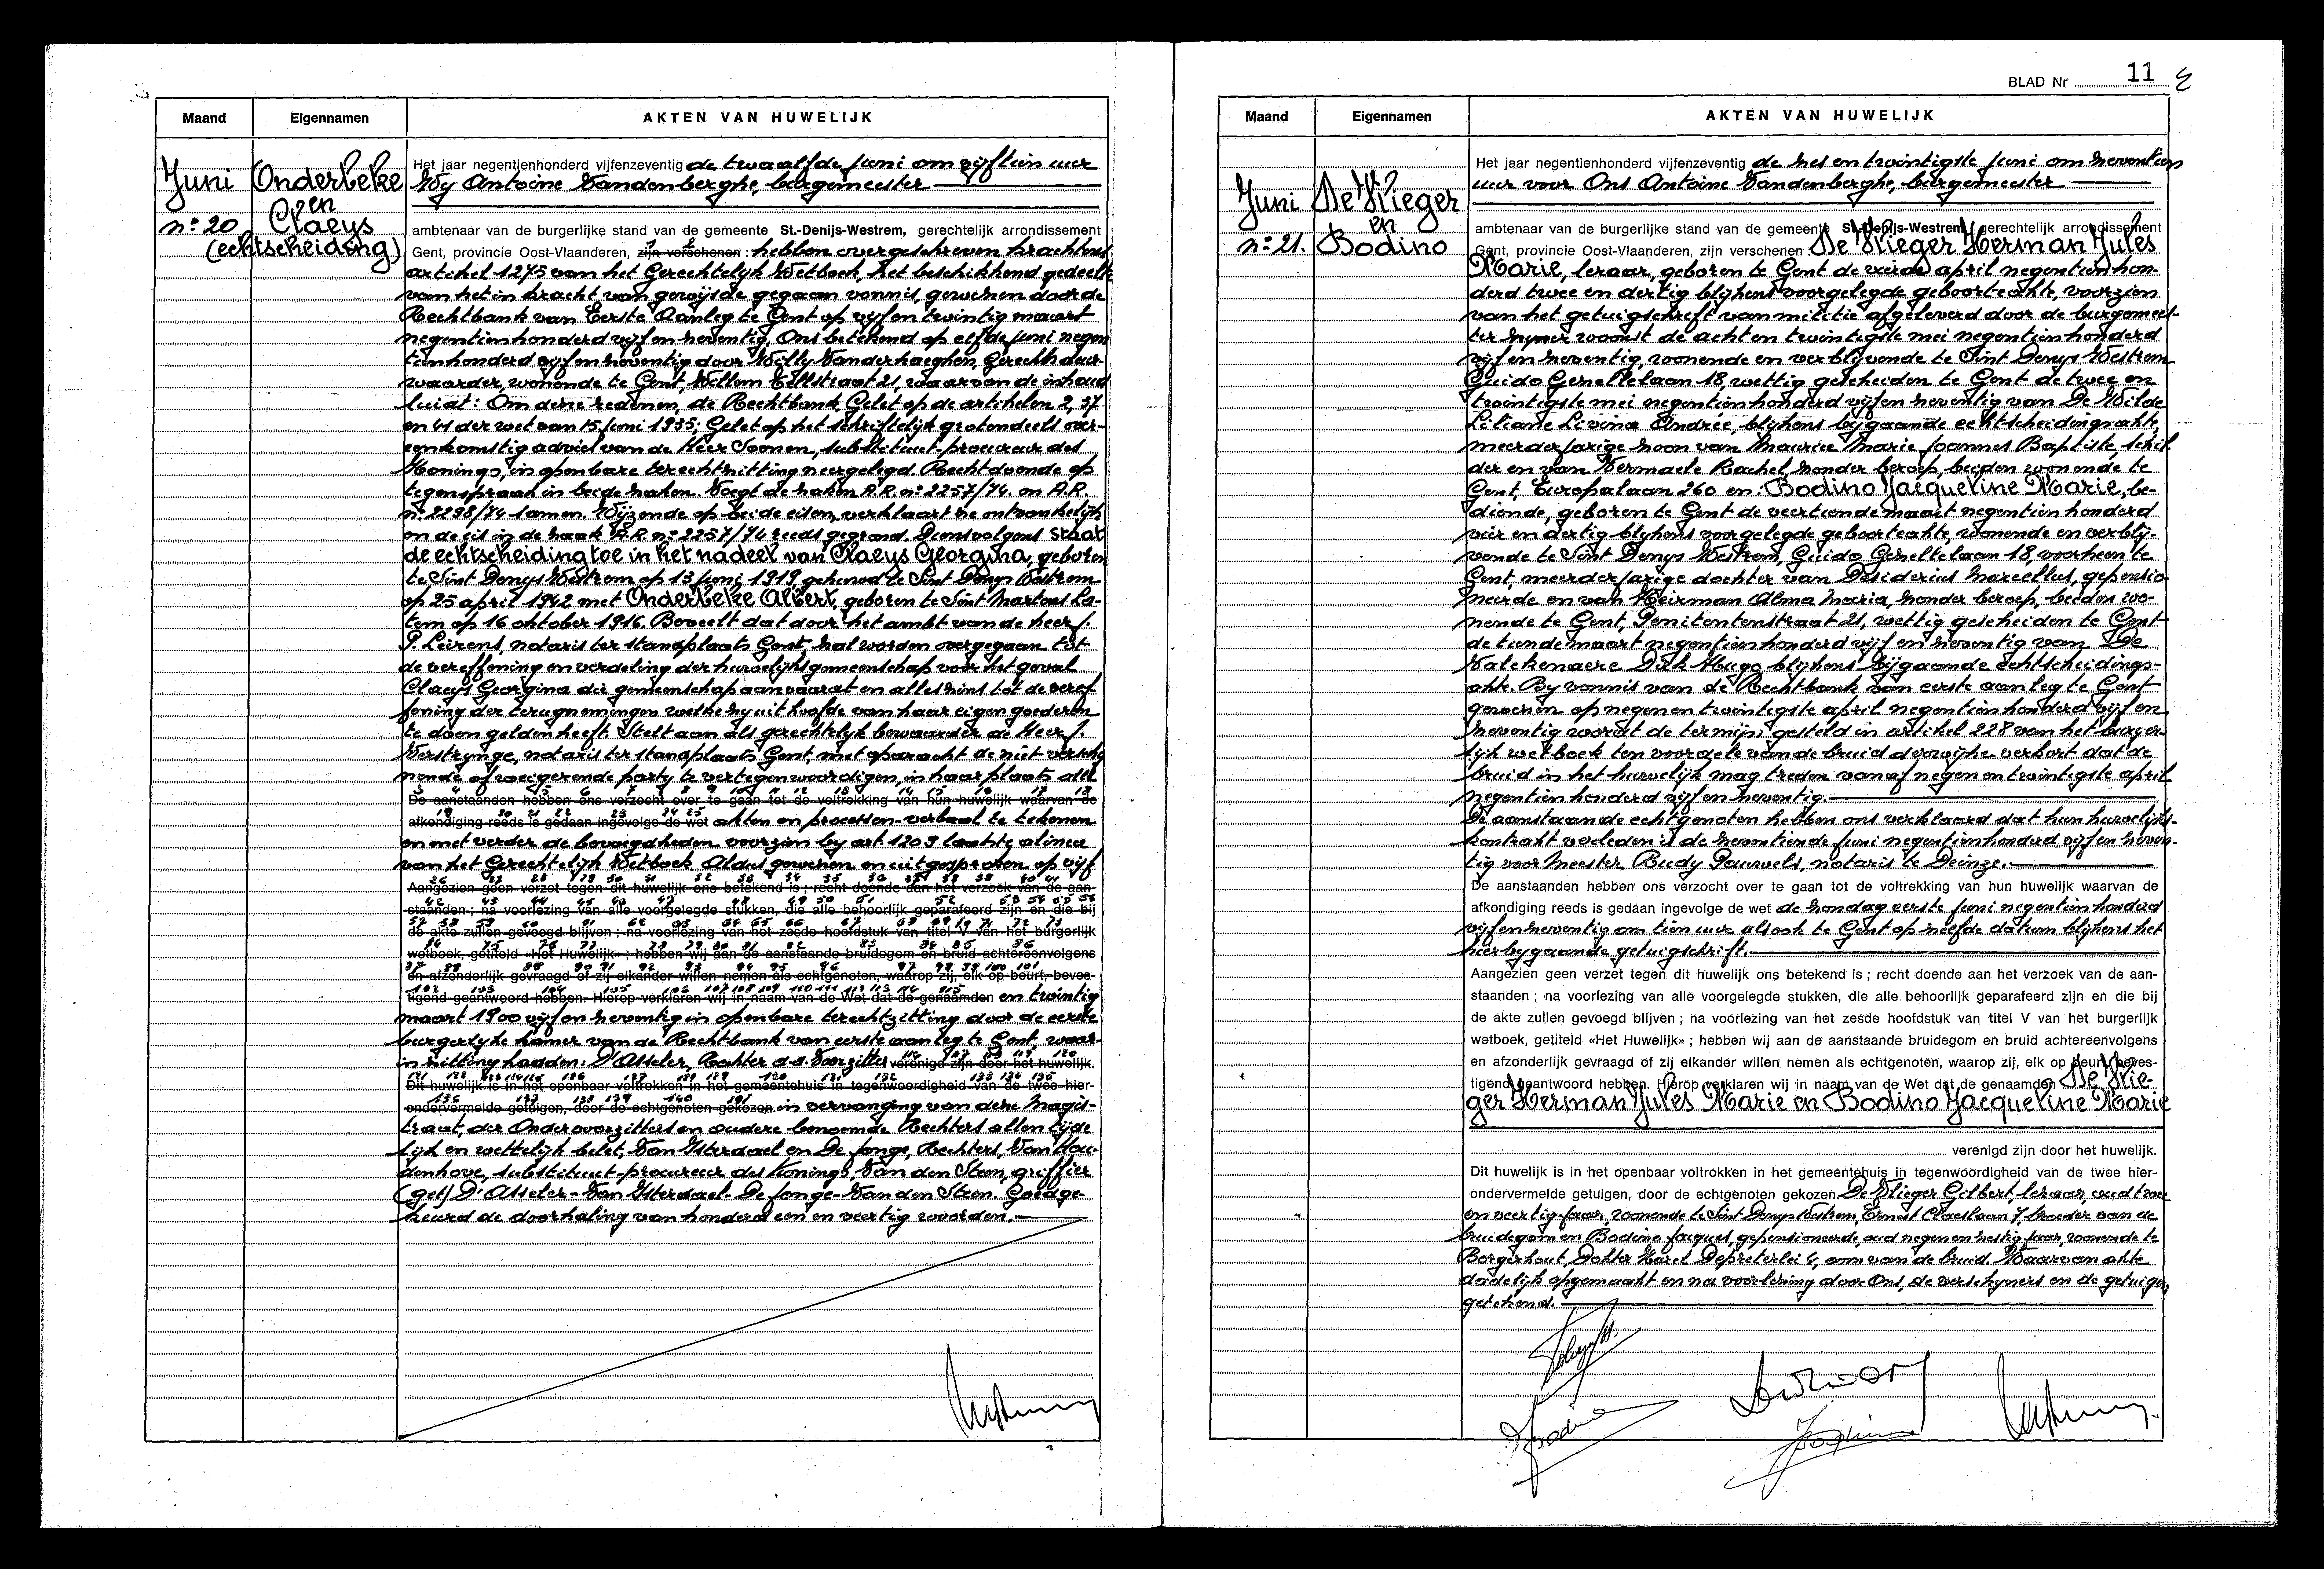 Maand Eigennamen AKTEN VAN HUWELIJK
Juni
n:20
Onderbeke
en
Claeys
(echtscheiding)
Het jaar negentienhonderd vijfenzeventig de twaalfde juni om vijftien uur
Wy Antoine Vandenberghe, burgemeester
ambtenaar van de burgerlijke stand van de gemeente St.-Denijs-Westrem, gerechtelijk arrondissement
Gent, provincie Oost-Vlaanderen, zijn verschenen : hebben overgeschreven krachtens
artikel 1275 van het Gerechtelyk Wetboek, het beschikkend gedeelte
van het in kracht van gewijsde gegaan vonnis, gewezen door de
Rechtbank van Eerste Aanleg te Gent op vijf en twintig maart
negentienhonderd vijf en zeventig. Ons betekend op elfde juni negen
tienhonderd vijf en zeventig door Willy Vanderhaeghen, gerechtsdeur-
waarder, wonende te Gent, Willem 21, waarvan de inhoud
luidt: Om deze redenen, de Rechtbank, Gelet op de artikelen 2, 37
en 41 der wet van 15 juni 1935; Gelet op het schriftelijk grotendeels over-
eenkomstig advies van de Heer Soenen, substituut-procureur des
Konings, in openbare terechtzitting neergelegd. Rechtdoende op
tegenspraak in beide zaken. Voegt de zaken A.R. n: 2257/74 en A.R.
n: 2298/74 samen. Wijzende op beide eisen, verklaart ze ontvankelijk
en de eis in de zaak A.R. n: 2257/74 reeds gegrond. Dienvolgens staat
de echtscheiding toe in het nadeel van Claeys Georgina, geboren
te Sint Denys Westrem op 13 juni 1919, gehuwd te Sint Denys Westrem
op 25 april 1942 met Onderbeke Albert, geboren te Sint Martens La-
tem op 16 oktober 1916. Beveelt dat door het ambt van de heer J.
P. Leirens, notaris ter standplaats Gent, zal worden overgegaan tot
de vereffening en verdeling der huwelijksgemeenschap voor het geval
Claeys Georgina die gemeenschap aanvaardt en alleszins tot de veref-
fening der terugnemingen welke zij uit hoofde van haar eigen goederen
te doen gelden heeft. Stelt aan als gerechtelijk bewaarder de Heer J.
Verstrynge, notaris ter standplaats Gent, met opdracht de niet verschij
nende of weigerende party te vertegenwoordigen, in haar plaats alle
De aanstaanden hebben ons verzocht over te gaan tot de voltrekking van hun huwelijk waarvan de
afkondiging reeds is gedaan ingevolge de wet akten en processen-verbaal te tekenen
en met verder de bevoegdheden voorzien by art. 1209 laatste alinea
van het Gerechtelijk Wetboek. Aldus gewezen en uitgesproken op vijf
Aangezien geen verzet tegen dit huwelijk ons betekend is ; recht doende aan het verzoek van de aan-
staanden ; na voorlezing van alle voorgelegde stukken, die alle behoorlijk geparafeerd zijn en die bij
de akte zullen gevoegd blijven ; na voorlezing van het zesde hoofdstuk van titel V van het burgerlijk
wetboek, getiteld «Het Huwelijk» ; hebben wij aan de aanstaande bruidegom en bruid achtereenvolgens
en afzonderlijk gevraagd of zij elkander willen nemen als echtgenoten, waarop zij, elk op beurt, beves-
tigend geantwoord hebben. Hierop verklaren wij in naam van de Wet dat de genaamden en twintig
maart 1900 vijf en zeventig in openbare terechtzitting door de eerste
burgerlyke kamer van de Rechtbank van eerste aanleg te Gent, waar-
in zitting hadden: D'Asseler, Rechter d.d. Voorzitter verenigd zijn door het huwelijk.
Dit huwelijk is in het openbaar voltrokken in het gemeentehuis in tegenwoordigheid van de twee hier-
ondervermelde getuigen, door de echtgenoten gekozen in vervanging van deze Magis-
traat, der Ondervoorzitters en oudere benoemde Rechters allen tijde
lijk en wettelijk belet, Van Ysterdael en De Jonge, Rechters, Van Hou-
denhove, substituut-procureur des Konings, Van den Steen, griffier
(get) D'Asseler - Van Ysterdael - De Jonge - Van den Steen. Goedge-
keurd de doorhaling van honderd een en veertig woorden.
BLAD Nr 11
Maand Eigennamen AKTEN VAN HUWELIJK
Juni
n:21.
De Vlieger
en
Bodino
Het jaar negentienhonderd vijfenzeventig de zes en twintigste juni om zeventien
uur voor Ons Antoine Vandenberghe, burgemeester
ambtenaar van de burgerlijke stand van de gemeente St.-Denijs-Westrem, gerechtelijk arrondissement
Gent, provincie Oost-Vlaanderen, zijn verschenen De Vlieger Herman Jules
Marie, leraar, geboren te Gent de vierde april negentienhon-
derd twee en dertig blijkens voorgelegde geboorteakte, voorzien
van het getuigschrift van militie afgeleverd door de burgemees-
ter zyner woonst de acht en twintigste mei negentienhonderd
vijf en zeventig, wonende en verblijvende te Sint Denys Westrem
Guido Gezellelaan 18, wettig gescheiden te Gent de twee en
twintigste mei negentienhonderd vijf en zeventig van De Wilde
Liliane Livina Andrée, blijkens bijgaande echtscheidingsakte,
meerderjarige zoon van Maurice Marie Joannes Baptiste, schil-
der en van Vermaele Rachel, zonder beroep, beiden wonende te
Gent, Europalaan 260 en: Bodino Jacqueline Marie, be-
diende, geboren te Gent de veertiende maart negentienhonderd
vier en dertig blijkens voorgelegde geboorteakte, wonende en verblij-
vende te Sint Denys Westrem, Guido Gezellelaan 18, voorheen te
Gent, meerderjarige dochter van Desiderius Marcellus, gepensio-
neerde en van Heirman Alma Maria, zonder beroep, beiden wo-
nende te Gent, Penitentenstraat 21, wettig gescheiden te Gent
de tiende maart negentienhonderd vijf en zeventig van De
Valckenaere Dirk Hugo blijkens bijgaande echtscheidings-
akte. By vonnis van de Rechtbank van eerste aanleg te Gent
gewezen op negen en twintigste april negentienhonderd vijf en
zeventig wordt de termijn gesteld in artikel 228 van het burger-
lijk wetboek ten voordele van de bruid derwijze verkort dat de
bruid in het huwelijk mag treden vanaf negen en twintigste april
negentienhonderd vijf en zeventig.
De aanstaande echtgenoten hebben ons verklaard dat hun huwelijks-
kontrakt verleden is de zeventiende juni negentienhonderd vijf en zeven-
tig voor Meester Rudy Pauwels, notaris te Deinze.
De aanstaanden hebben ons verzocht over te gaan tot de voltrekking van hun huwelijk waarvan de
afkondiging reeds is gedaan ingevolge de wet de zondag eerste juni negentienhonderd
vijfenzeventig om tien uur alsook te Gent op zelfde datum blijkens het
hierbygaande getuigschrift.
Aangezien geen verzet tegen dit huwelijk ons betekend is ; recht doende aan het verzoek van de aan-
staanden ; na voorlezing van alle voorgelegde stukken, die alle behoorlijk geparafeerd zijn en die bij
de akte zullen gevoegd blijven ; na voorlezing van het zesde hoofdstuk van titel V van het burgerlijk
wetboek, getiteld «Het Huwelijk» ; hebben wij aan de aanstaande bruidegom en bruid achtereenvolgens
en afzonderlijk gevraagd of zij elkander willen nemen als echtgenoten, waarop zij, elk op beurt, beves-
tigend geantwoord hebben. Hierop verklaren wij in naam van de Wet dat de genaamden De Vlie-
ger Herman Jules Marie en Bodino Jacqueline Marie
verenigd zijn door het huwelijk.
Dit huwelijk is in het openbaar voltrokken in het gemeentehuis in tegenwoordigheid van de twee hier-
ondervermelde getuigen, door de echtgenoten gekozen De Vlieger Gilbert, leraar, oud twee
en veertig jaar, wonende te Sint Denys Westrem, Ernest Claeslaan 7, broeder van de
bruidegom en Bodino Jacques, gepensioneerde, oud negen en zestig jaar, wonende te
Borgerhout, Dokter Karel Depreterlei 4, oom van de bruid. Waarvan akte
dadelijk opgemaakt en na voorlezing door Ons, de verschijners en de getuigen
getekend.